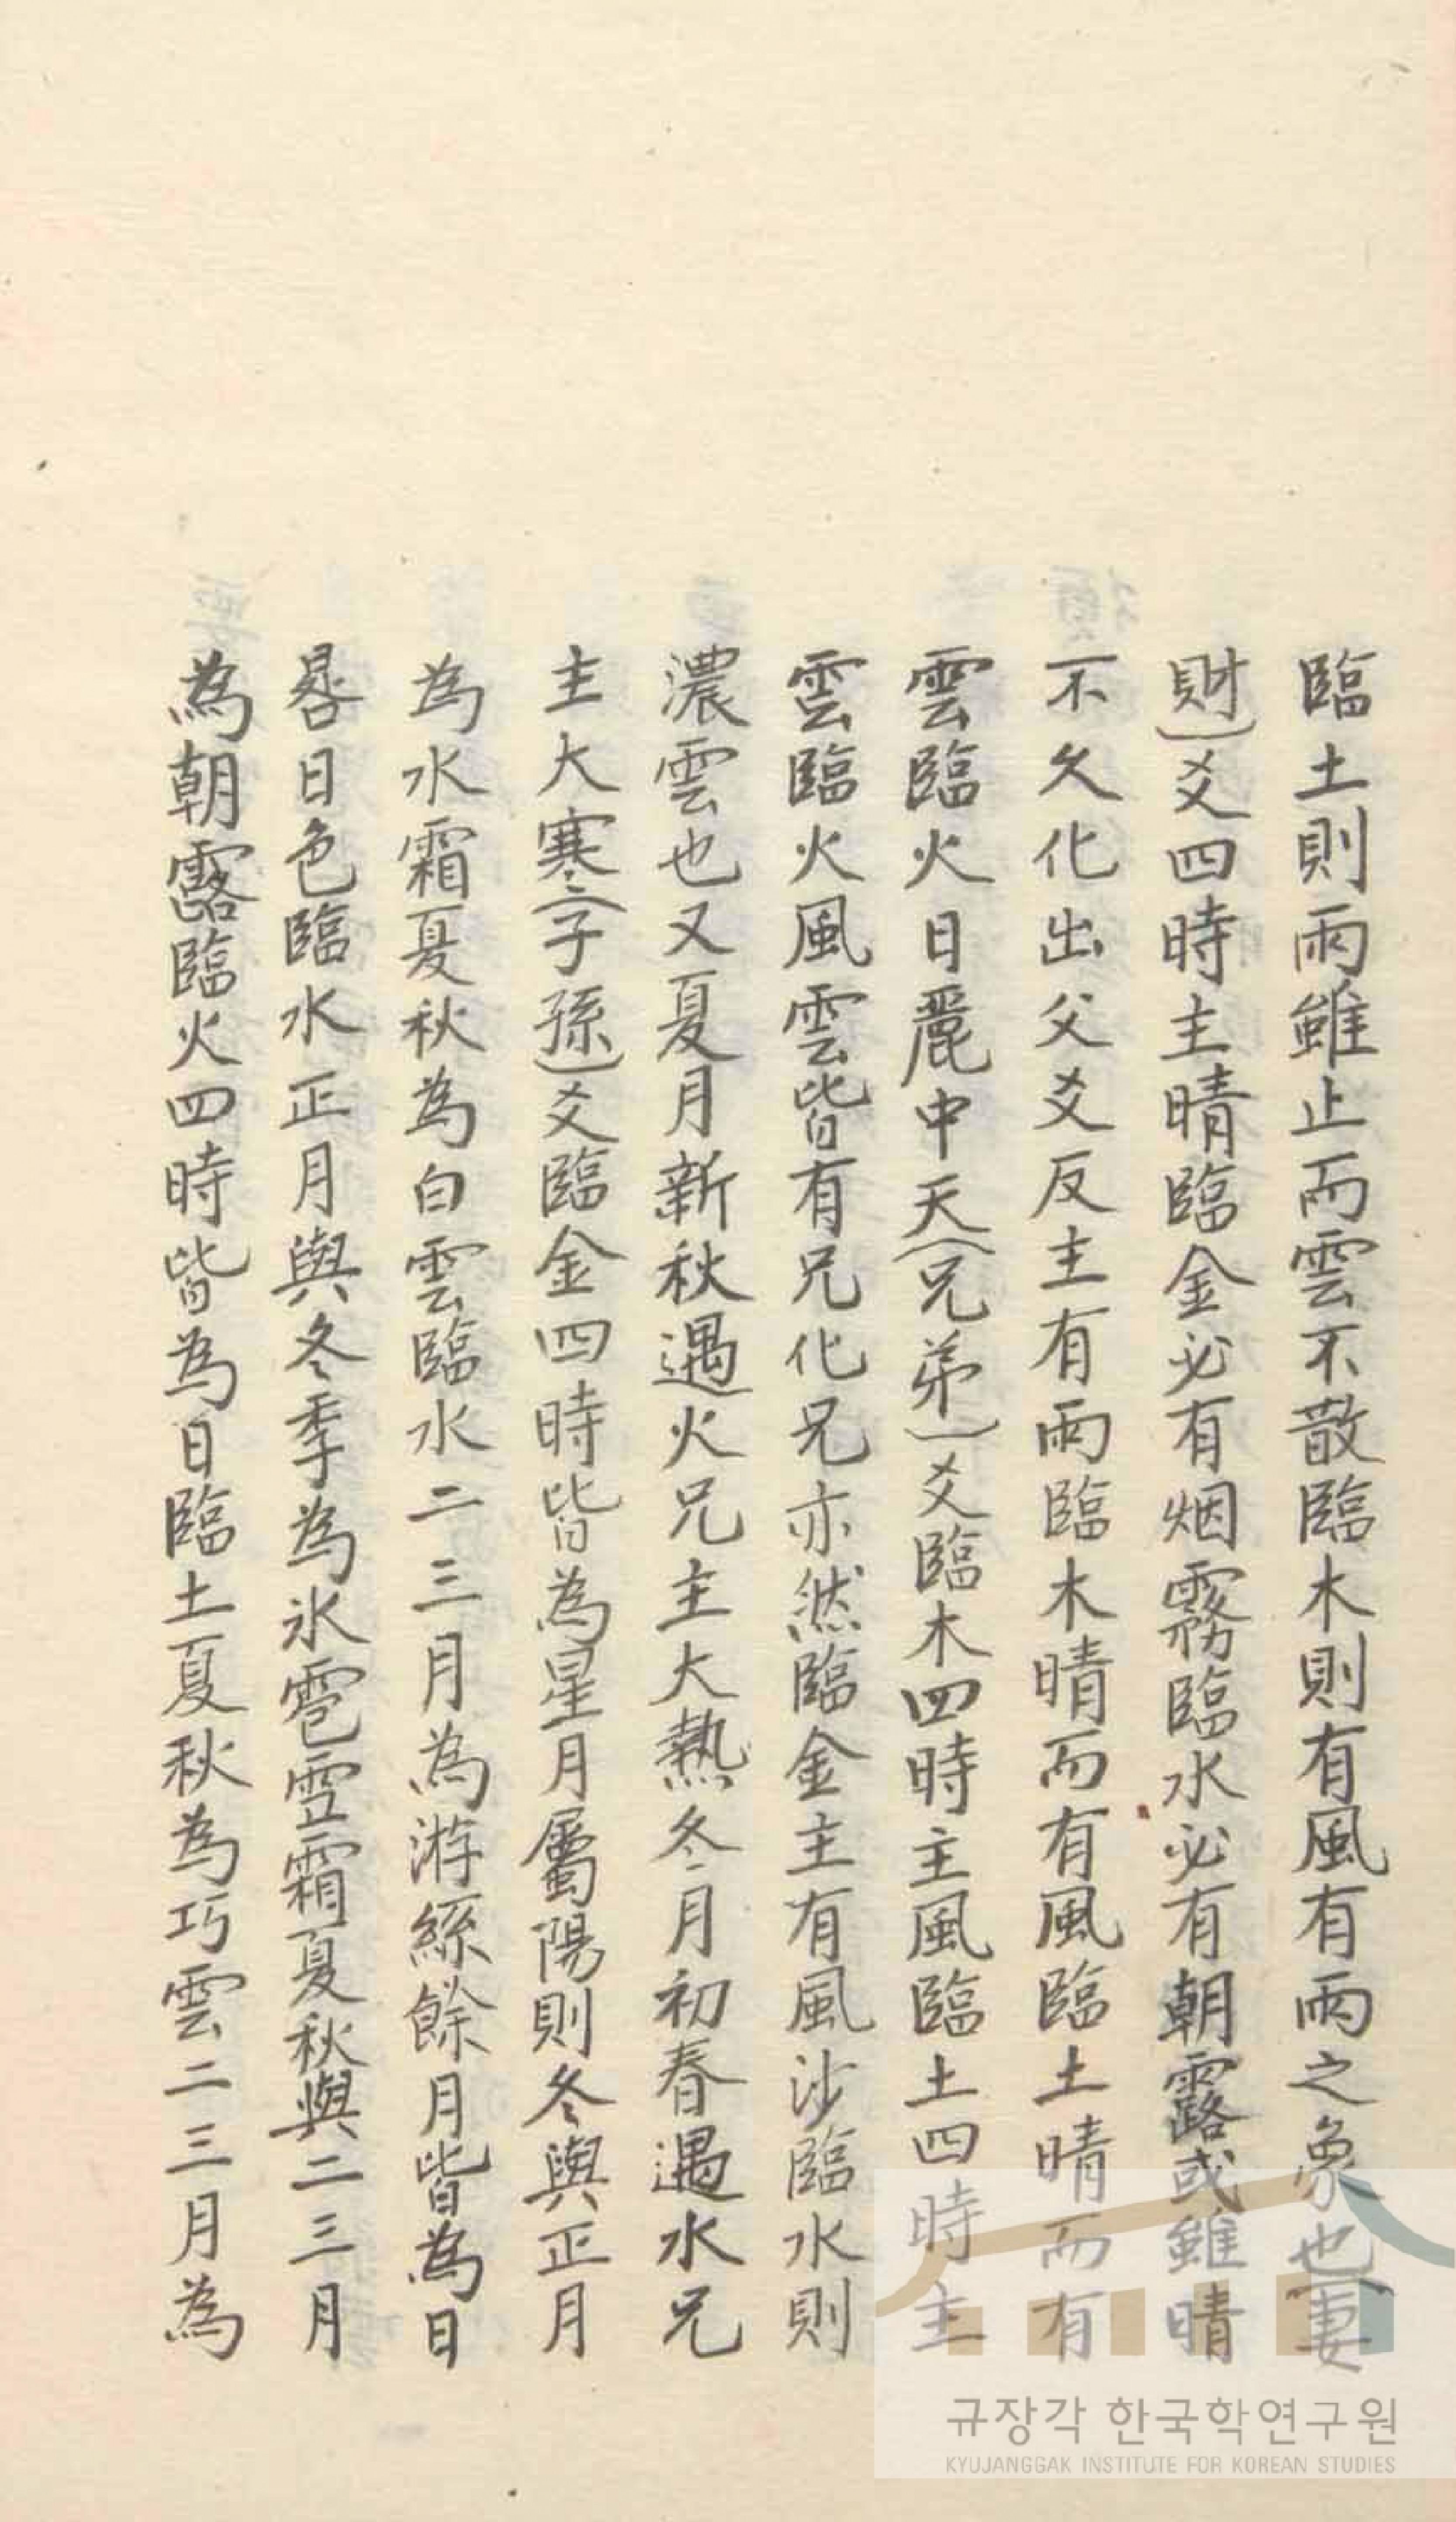 臨土則雨雖止而雲不散臨木則有風有雨之象也(妻
財)爻四時主晴臨金必有烟霧臨水必有朝露或雖晴
不久化出父爻反主有雨臨木晴而有風臨土晴而有
雲臨火日麗中天(兄弟)爻臨木四時主風臨土四時主
雲臨火風雲皆有兄化兄亦然臨金主有風沙臨水則
濃雲也又夏月新秋遇火兄主大熱冬月初春遇水兄
主大寒(子孫)爻臨金四時皆為星月屬陽則冬與正月
為水霜夏秋為白雲臨水二三月為游絲餘月皆為日
晷日色臨水正月與冬季為氷雹雪霜夏秋與二三月
為朝露臨火四時皆為日臨土夏秋為巧雲二三月為
규장각 한국학연구원
KYUJANGGAK INSTITUTE FOR KOREAN STUDIES